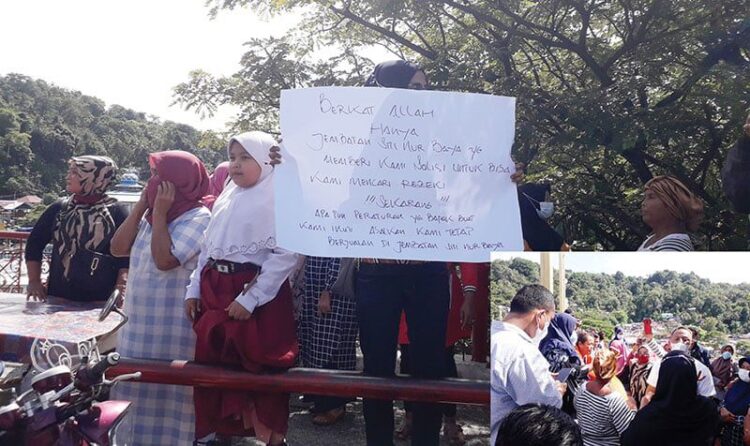 BERKAT ALLAH
HANYA
JEMBATAN SITI NUR BAYA YG
MEMBERI KAMI SOLUSI UNTUK BISA
KAMI MENCARI REZEKI
!!! SEKARANG !!!
APA PUN PERATURAN YG BAPAK BUAT
KAMI IKUTI ASALKAN KAMI TETAP
BERJUALAN DI JEMBATAN SITI NUR BAYA